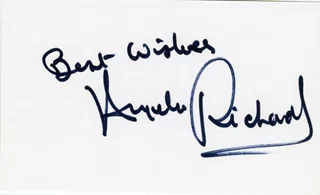 Best Wishes
Angela Richards